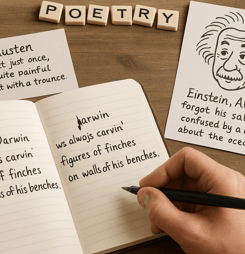 POETRY
Austen
et just once,
uite painful
t with a trounce.
Einstein, A
forgot his sal
confused by a
about the ocea
Darwin
s carvin'
f finches
s of his benches.
Darwin
ws always carvin'
figures of finches
on walls of his benches.